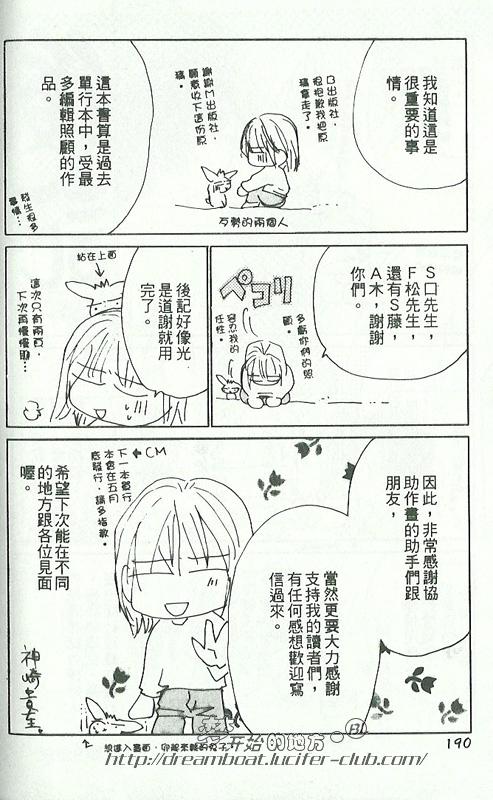 我知道這是
很重要的事
情。
B出版社，
很抱歉我把原
稿拿走了。
謝謝M出版社，
願意收下這份原
稿。
互勉的兩個人
這本書算是過去
單行本中，受最
多編輯照顧的作
品。
發生很多
事情…
S口先生，
F松先生，
還有S藤，
A木，謝謝
你們。
ペコリ
多虧你們的照
顧。
容忍我的
任性。
後記好像光
是道謝就用
完了。
粘在上面
這次只有兩頁，
下次再慢慢聊…
因此，非常感謝協
助作畫的助手們跟
朋友，
當然更要大力感謝
支持我的讀者們，
有任何感想歡迎寫
信過來。
←CM
下一本單行
本會在五月
底發行，請多指教。
希望下次能在不同
的地方跟各位見面
喔。
神崎貴至。
開始的地方
190
http://dreamboat.lucifer-club.com/